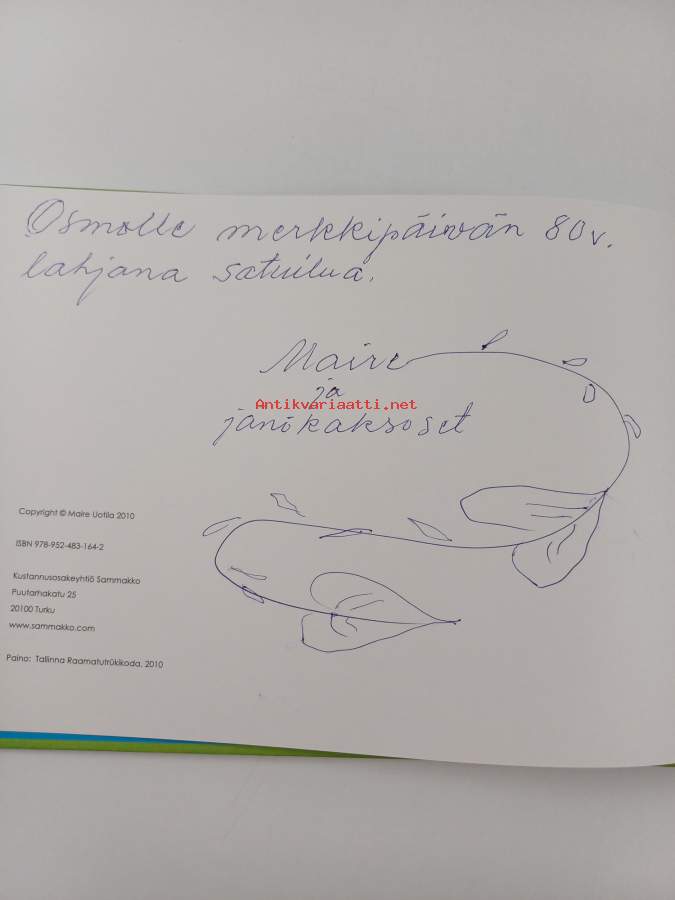 Osmolle merkkipäivän 80v.
lahjana satuilua.
Maire
ja
Antikvariaatti.net
jänökaksoset
Copyright © Maire Uotila 2010
ISBN 978-952-483-164-2
Kustannusosakeyhtiö Sammakko
Puutarhakatu 25
20100 Turku
www.sammakko.com
Paino: Tallinna Raamatutrükikoda, 2010